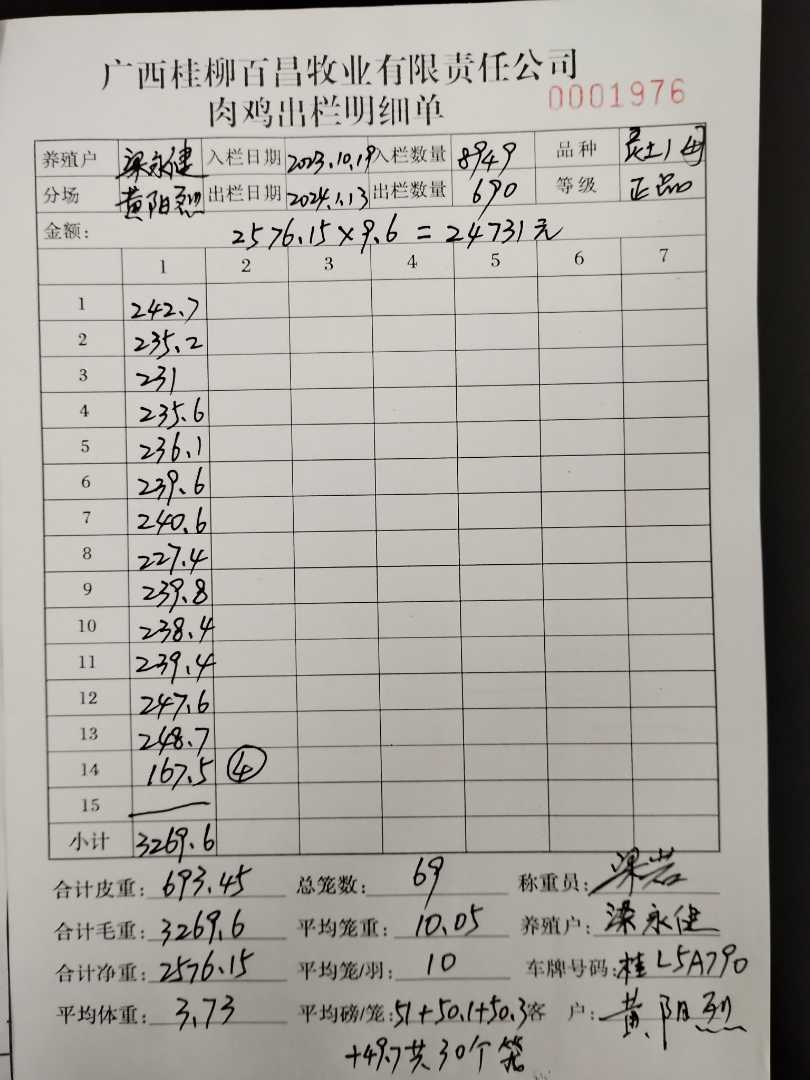 广西桂柳百昌牧业有限责任公司
肉鸡出栏明细单 0001976
养殖户 梁永健 入栏日期 2023.10.19 入栏数量 8949 品种 母
分场 黄阳烈 出栏日期 2024.1.13 出栏数量 690 等级 正品
金额: 2576.15×9.6=24731元
1 2 3 4 5 6 7
1 242.7
2 235.2
3 231
4 235.6
5 236.1
6 239.6
7 240.6
8 227.4
9 239.8
10 238.4
11 239.4
12 247.6
13 248.7
14 167.5 ④
15
小计 3269.6
合计皮重: 693.45 总笼数: 69 称重员: 梁岩
合计毛重: 3269.6 平均笼重: 10.05 养殖户: 梁永健
合计净重: 2576.15 平均笼/羽: 10 车牌号码: 桂L5A790
平均体重: 3.73 平均磅/笼: 51+50.1+50.3 客户: 黄阳烈
+49.7共30个笼